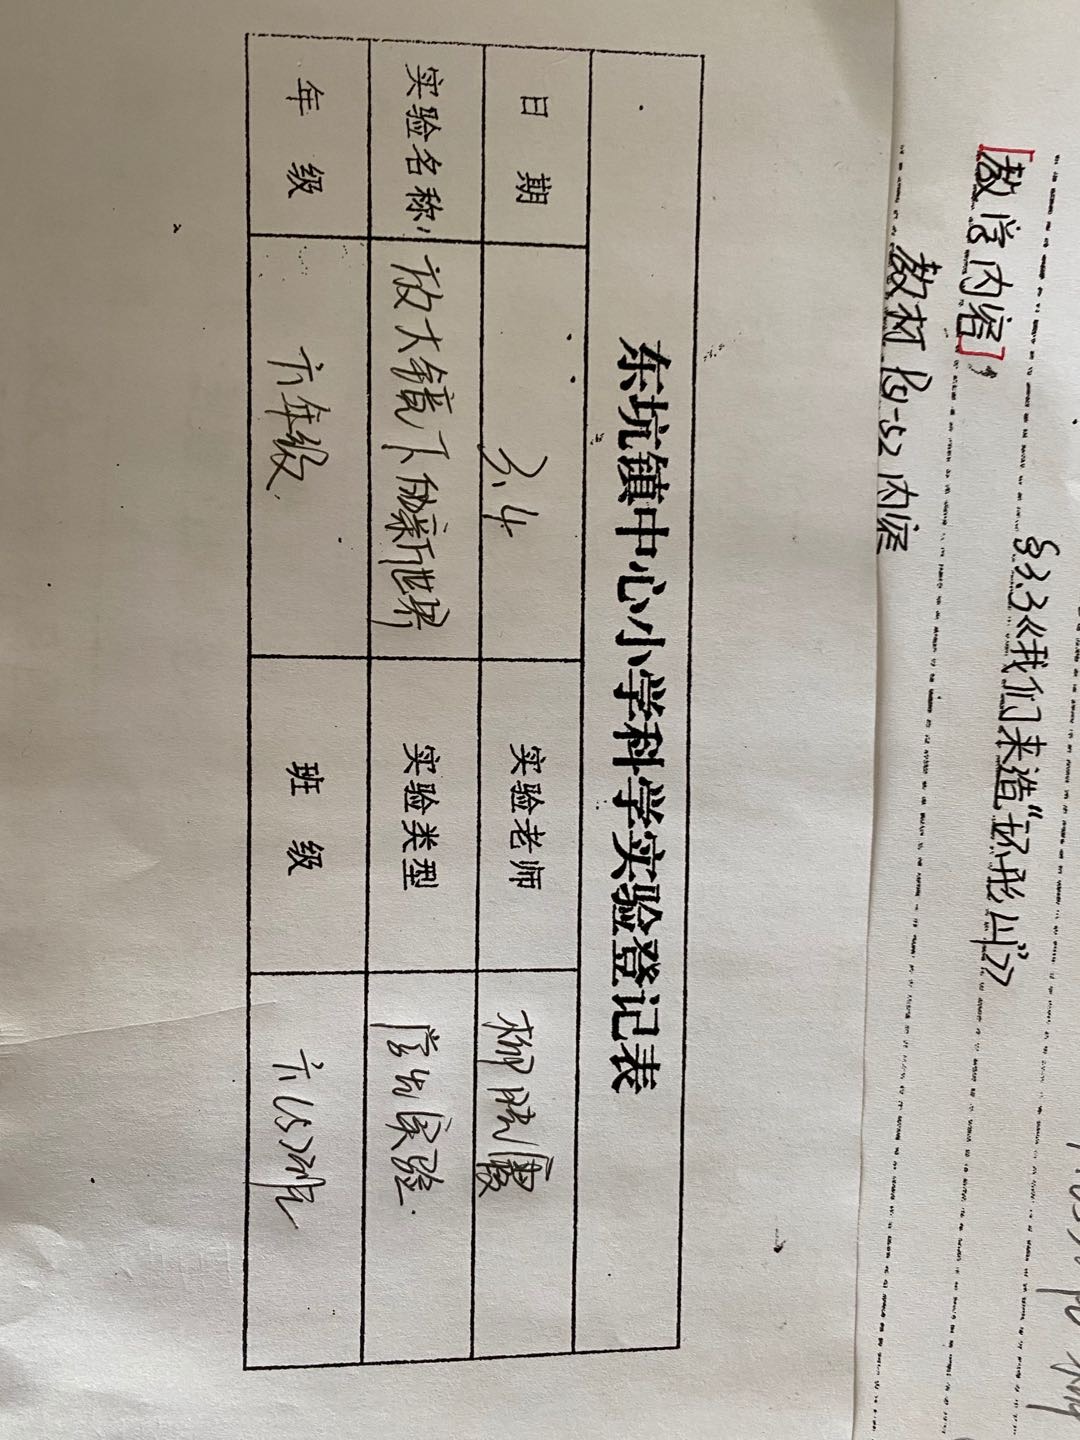 §3.3《我们来造“环形山”》
[教学内容],
教材P51-52内容
东坑镇中心小学科学实验登记表
日 期 3.4 实验老师 柳晓霞
实验名称 放大镜下的新世界 实验类型 学生实验
年 级 六年级 班 级 六(5)班